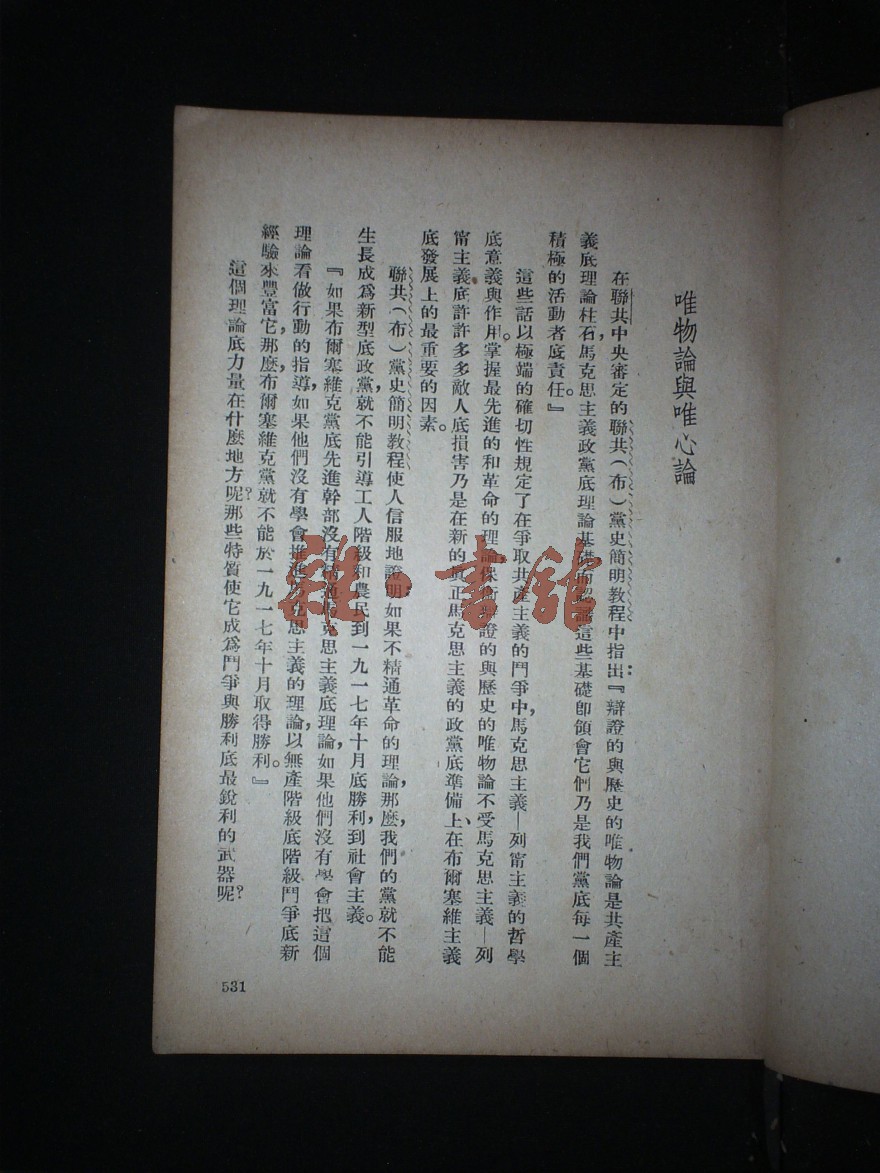 唯物論與唯心論
在聯共中央審定的聯共（布）黨史簡明教程中指出：『辯證的與歷史的唯物論是共產主
義底理論柱石，馬克思主義政黨底理論基礎，而認識這些基礎卽領會它們乃是我們黨底每一個
積極的活動者底責任。』
這些話以極端的確切性規定了在爭取共產主義的鬥爭中，馬克思主義—列甯主義的哲學
底意義與作用。掌握最先進的和革命的理論，保衛辯證的與歷史的唯物論不受馬克思主義—列
甯主義底許許多多敵人底損害乃是在新的眞正馬克思主義的政黨底準備上、在布爾塞維主義
底發展上的最重要的因素。
聯共（布）黨史簡明教程使人信服地證明：如果不精通革命的理論，那麼，我們的黨就不能
生長成爲新型底政黨，就不能引導工人階級和農民到一九一七年十月底勝利，到社會主義。
『如果布爾塞維克黨底先進幹部沒有精通馬克思主義底理論，如果他們沒有學會把這個
理論看做行動的指導，如果他們沒有學會推進馬克思主義的理論，以無產階級底階級鬥爭底新
經驗來豐富它，那麼，布爾塞維克黨就不能於一九一七年十月取得勝利。』
這個理論底力量在什麼地方呢？那些特質使它成爲鬥爭與勝利底最銳利的武器呢？
531
雜·書館